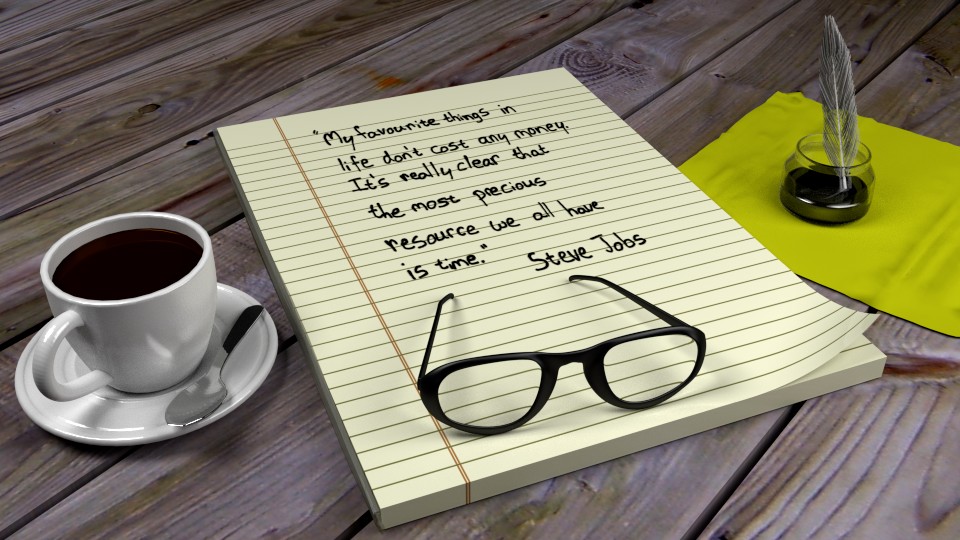 "My favourite things in
life don't cost any money.
It's really clear that
the most precious
resource we all have
is time." Steve Jobs